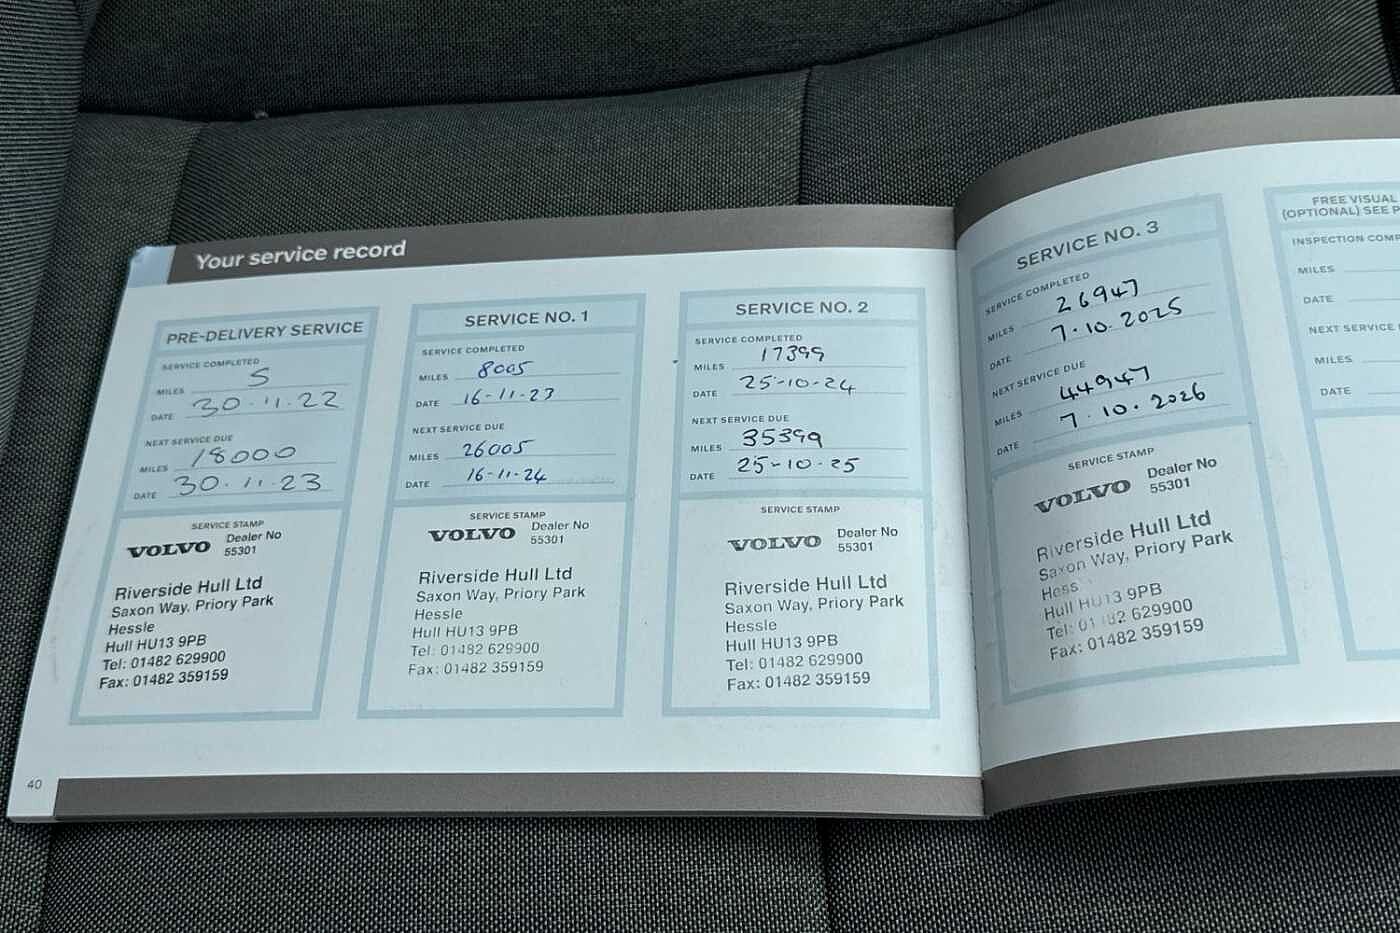 Your service record
PRE-DELIVERY SERVICE
SERVICE COMPLETED
MILES 5
DATE 30.11.22
NEXT SERVICE DUE
MILES 18000
DATE 30.11.23
SERVICE STAMP
VOLVO Dealer No
55301
Riverside Hull Ltd
Saxon Way, Priory Park
Hessle
Hull HU13 9PB
Tel: 01482 629900
Fax: 01482 359159
SERVICE NO. 1
SERVICE COMPLETED
MILES 8005
DATE 16-11-23
NEXT SERVICE DUE
MILES 26005
DATE 16-11-24
SERVICE STAMP
VOLVO Dealer No
55301
Riverside Hull Ltd
Saxon Way, Priory Park
Hessle
Hull HU13 9PB
Tel: 01482 629900
Fax: 01482 359159
SERVICE NO. 2
SERVICE COMPLETED
MILES 17399
DATE 25-10-24
NEXT SERVICE DUE
MILES 35399
DATE 25-10-25
SERVICE STAMP
VOLVO Dealer No
55301
Riverside Hull Ltd
Saxon Way, Priory Park
Hessle
Hull HU13 9PB
Tel: 01482 629900
Fax: 01482 359159
SERVICE NO. 3
SERVICE COMPLETED
MILES 26947
DATE 7.10.2025
NEXT SERVICE DUE
MILES 44947
DATE 7.10.2026
SERVICE STAMP
VOLVO Dealer No
55301
Riverside Hull Ltd
Saxon Way, Priory Park
Hess
Hull HU13 9PB
Tel: 01482 629900
Fax: 01482 359159
FREE VISUAL
(OPTIONAL) SEE P
INSPECTION COMP
MILES
DATE
NEXT SERVICE
MILES
DATE
40